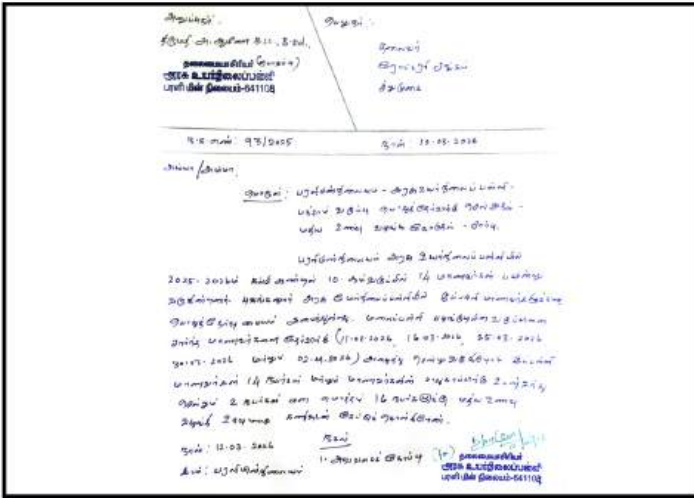 அனுப்புநர்:
திருமதி அ. ஆமினா B.Lit., B.Ed.,
தலைமையாசிரியர் (பொறுப்பு)
அரசு உயர்நிலைப்பள்ளி
பரளி மின் நிலையம்-641108
பெறுநர்:
தலைவர்
ரோட்டரி சங்கம்
சிறுமுகை
ந.க.எண்: 93/2025
நாள்: 12-03-2026
அய்யா/அம்மா,
பொருள்: பரளிமின்நிலையம் - அரசு உயர்நிலைப் பள்ளி -
பத்தாம் வகுப்பு பொதுத்தேர்விற்கு
மதிய உணவு வழங்க கோருதல் - சார்பு.
பரளிமின்நிலையம் அரசு உயர்நிலைப் பள்ளியில்
2025-2026ம் கல்வி ஆண்டில் 10-ஆம் வகுப்பில் 14 மாணவர்கள் பயின்று
வருகின்றனர். அரசு மேல்நிலைப்பள்ளியில் இப்பள்ளி மாணவர்களுக்கான
பொதுத்தேர்வு மையம் அமைந்துள்ளது.
மாணவர்களை தேர்விற்கு (11-03-2026, 16-03-2026, 25-03-2026
30-03-2026 மற்றும் 02-04-2026) அழைத்து
மாணவர்கள் 14 நபர்கள் மற்றும் மாணவர்களின்
2 நபர்கள் என மொத்தம் 16 நபர்களுக்கு மதிய உணவு
வழங்கி உதவுமாறு கேட்டுக் கொள்கிறேன்.
நாள்: 12-03-2026
இடம்: பரளிமின்நிலையம்
நகல்
1. அலுவலகக் கோப்பு
தலைமையாசிரியர்
அரசு உயர்நிலைப்பள்ளி
பரளி மின் நிலையம்-641108